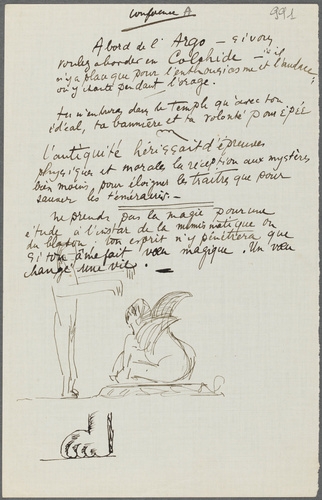 Conférence A
991
A bord de l'Argo — si vous
voulez aborder en Colchide — il
n'y a place que pour l'enthousiasme et l'audace,
on y chante pendant l'orage.
tu n'entres dans le Temple qu'avec ton
idéal, ta bannière et ta volonté pour EPÉE
L'antiquité hérissait d'épreuves
physiques et morales la réception aux mystères
bien moins pour éloigner les traîtres que pour
sauver les téméraires.
ne prends pas la magie pour une
étude à l'instar de la numismatique ou
du blason, ton esprit n'y pénétrera que
si ton âme fait vœu magique. Un vœu
change une vie.